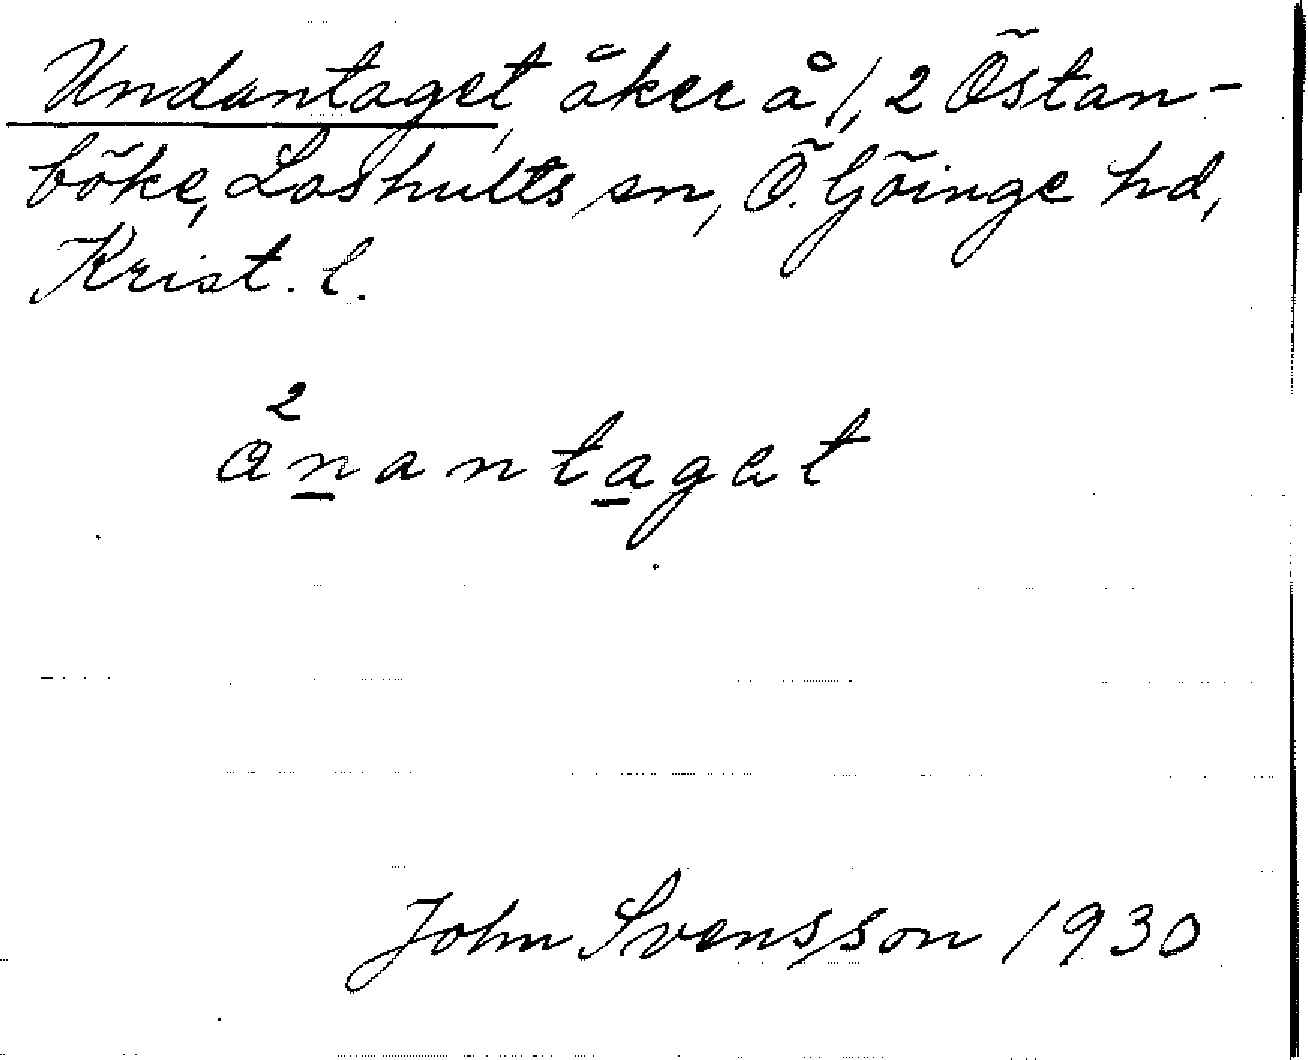 Undantaget, åker å 1, 2 Östan-
böke, Loshults sn, Ö. Göinge hd,
Krist. l.
2
ånantaget
John Svensson 1930